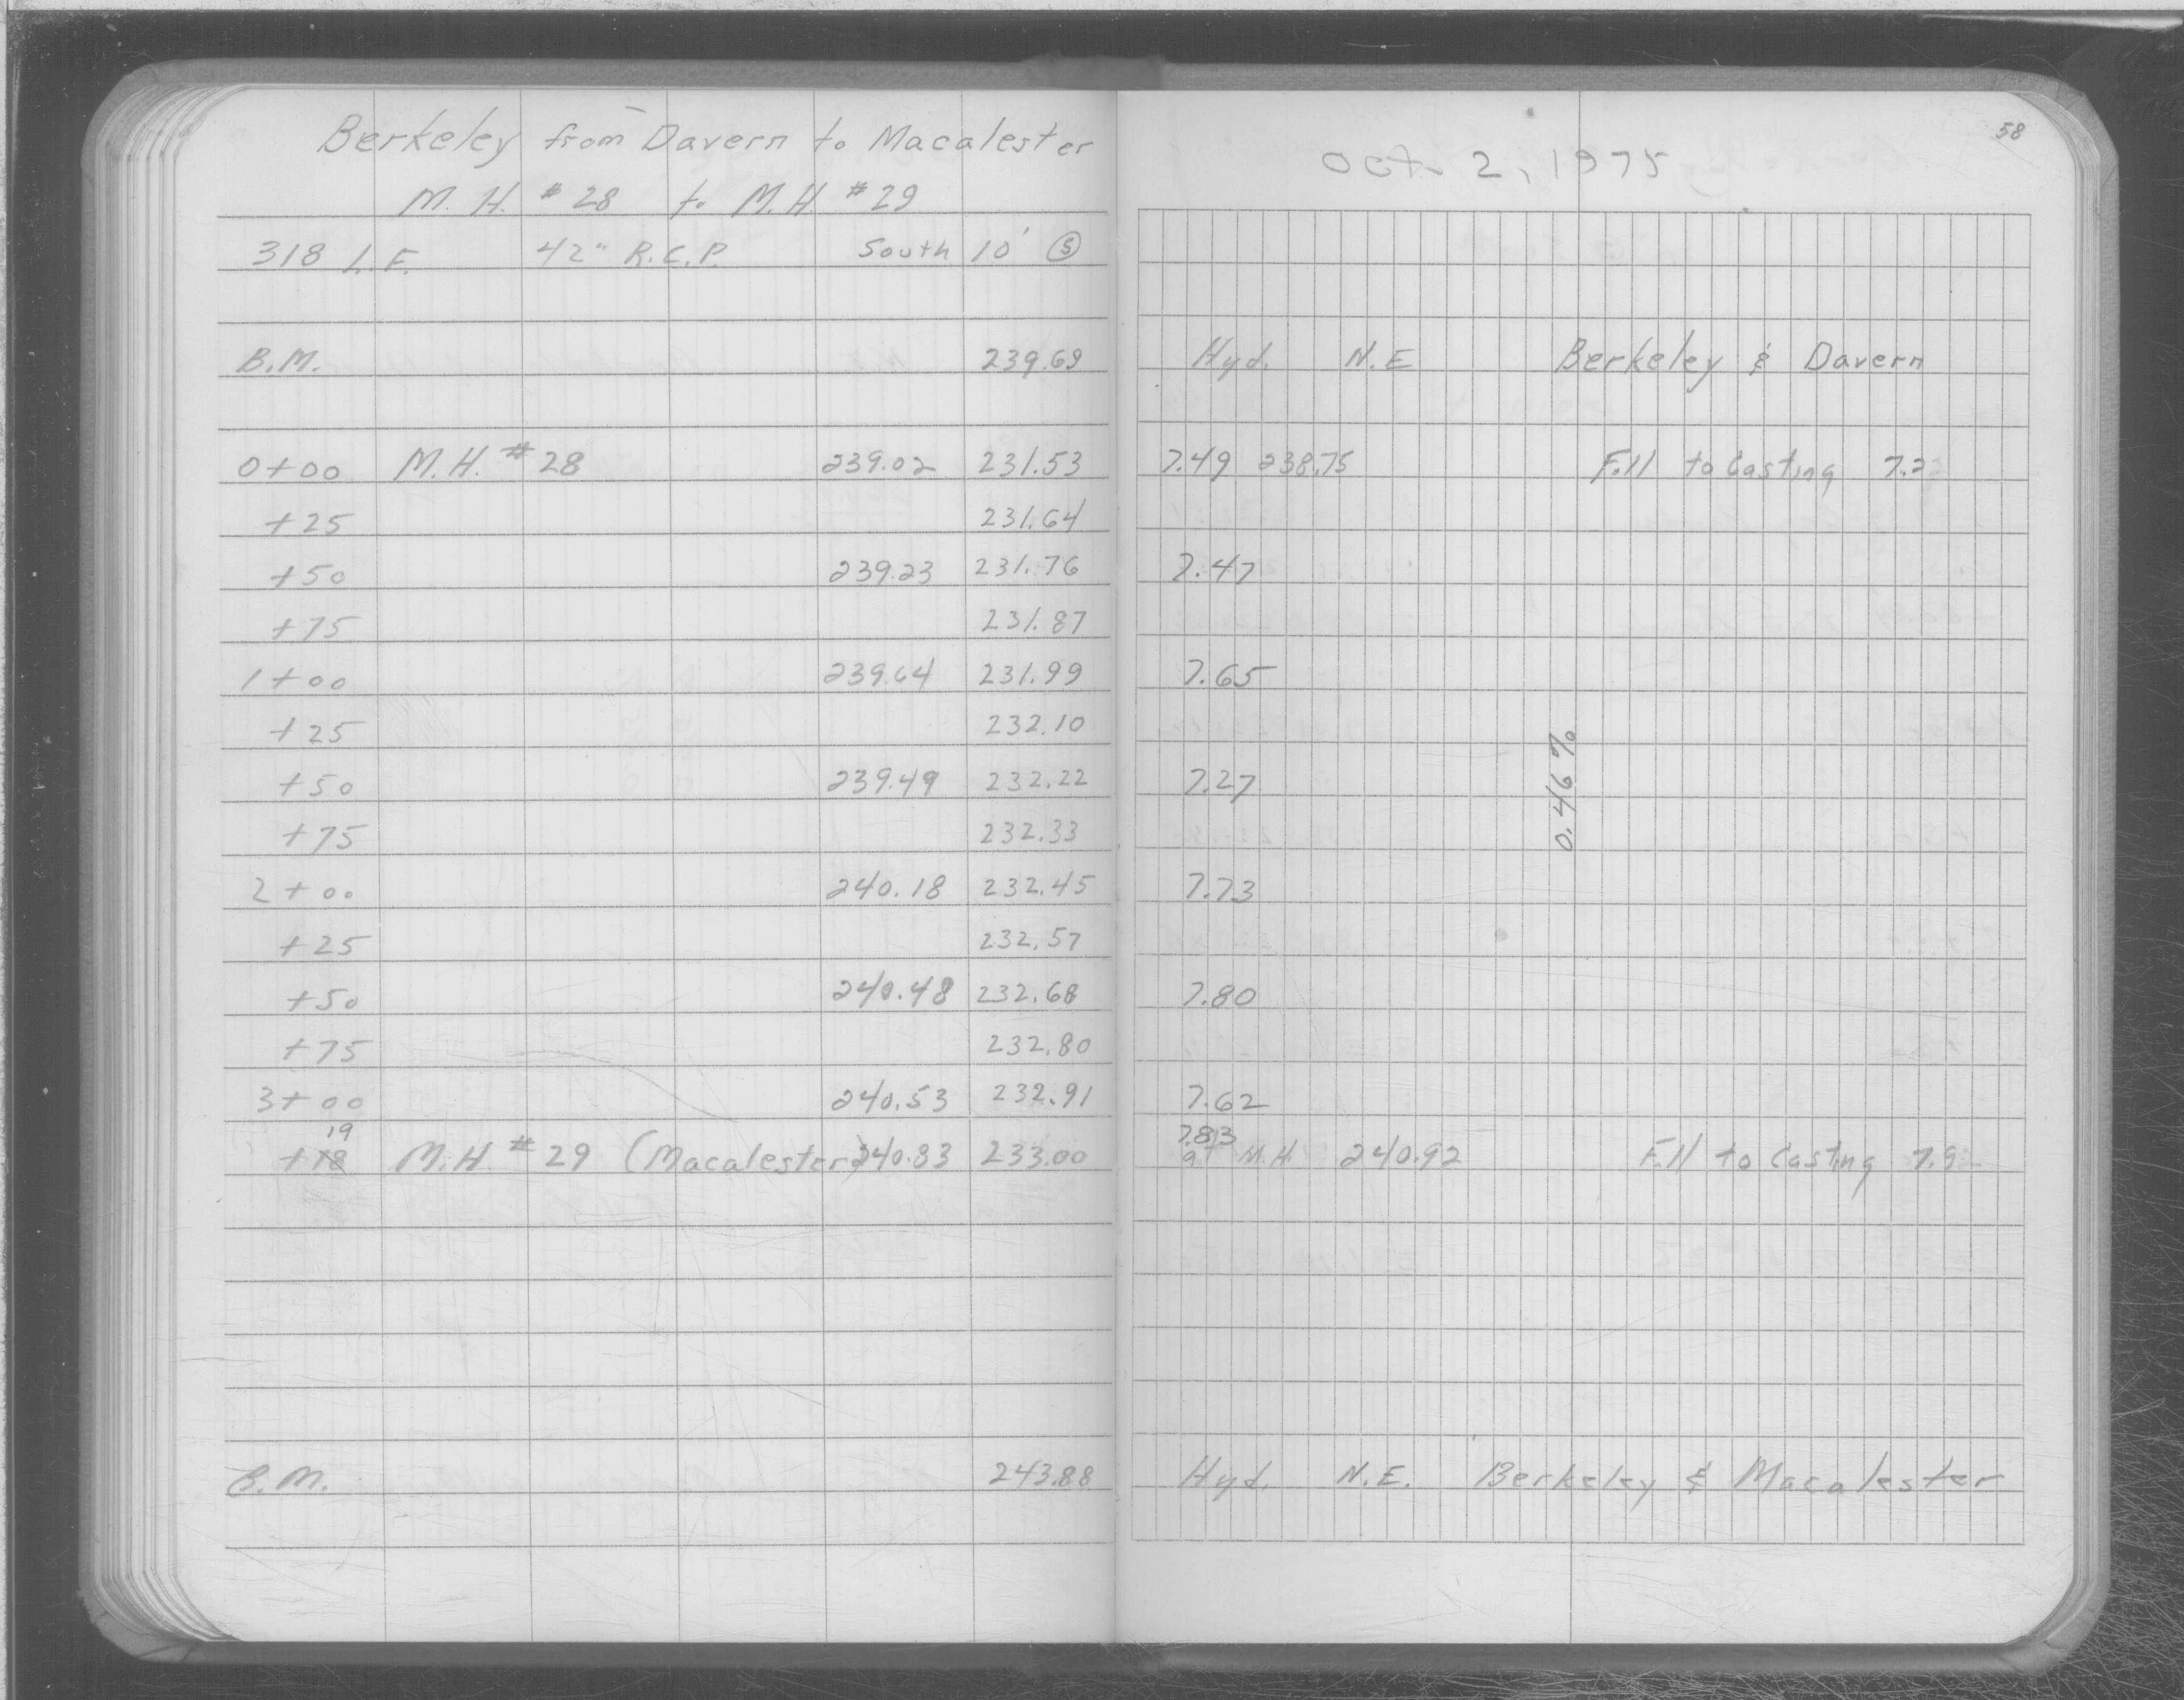 Berkeley from Davern to Macalester
M.H. #28 to M.H. #29
318 L.F. 42" R.C.P. South 10' Ⓢ
B.M. 239.69
0+00 M.H. #28 239.02 231.53
+25 231.64
+50 239.23 231.76
+75 231.87
1+00 239.64 231.99
+25 232.10
+50 239.49 232.22
+75 232.33
2+00 240.18 232.45
+25 232.57
+50 240.48 232.68
+75 232.80
3+00 240.53 232.91
19
+18 M.H. #29 (Macalester) 240.83 233.00
B.M. 243.88
58
Oct. 2, 1975
Hyd. N.E Berkeley & Davern
7.49 238.75 Fill to Casting 7.2
7.47
7.65
7.27
0.46%
7.73
7.80
7.62
7.83
at M.H. 240.92 Fill to Casting 7.9
Hyd. N.E. Berkeley & Macalester